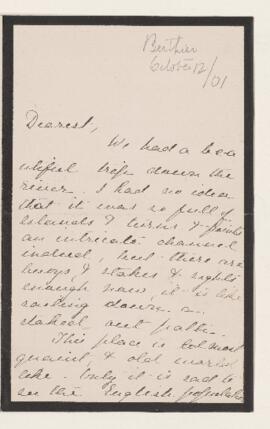 Berthier
October 12/01
Dearest,
We had a bea
utiful trip down the
river. I had no idea
that it was so full of
islands & turns & points
an intricate channel
indeed, but there are
buoys & stakes & lights
enough now, it is like
sailing down a
staked out path.
This place is
quaint, & old
like. Only it is sad to
see the English population